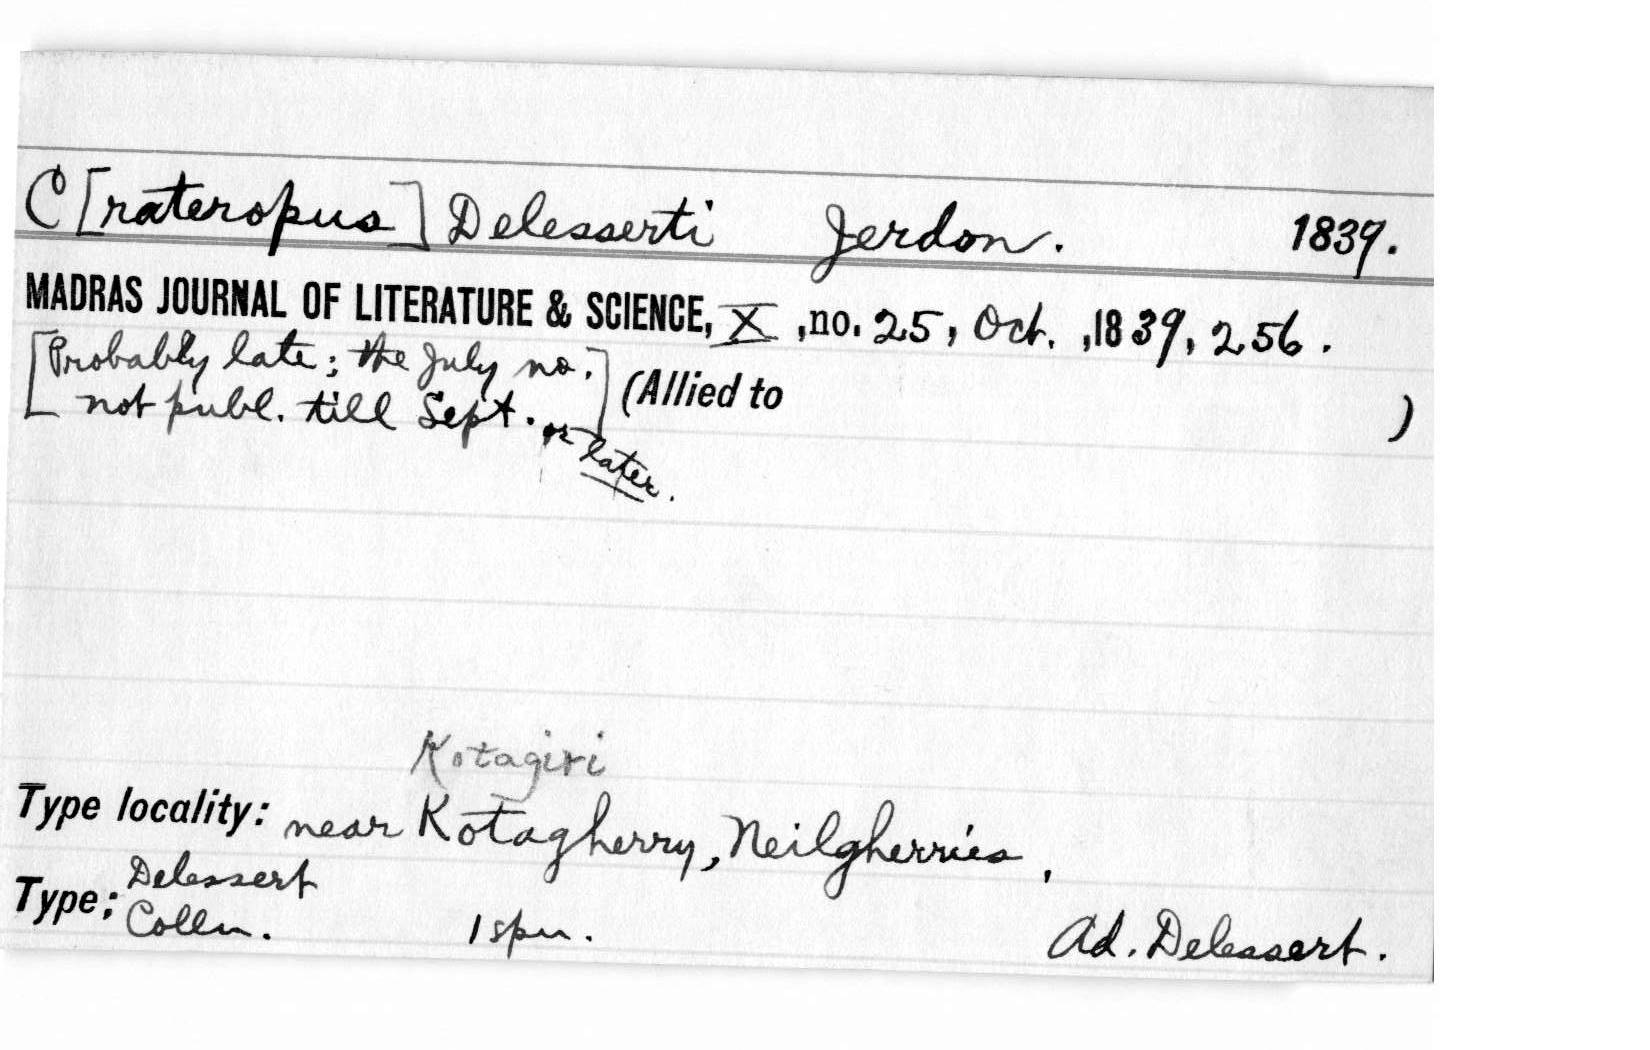 C[rateropus] Delesserti Jerdon. 1839.
MADRAS JOURNAL OF LITERATURE & SCIENCE, X, no. 25, Oct., 1839, 256.
[Probably late; the July no.
not publ. till Sept. or later.] (Allied to )
Kotagiri
Type locality: near Kotagherry, Neilgherries,
Type: Delessert
Colln. 1 spn. Ad. Delessert.